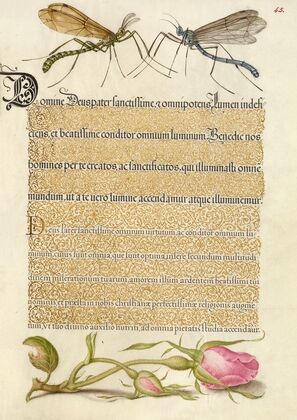 45.
Domine Deus pater sanctissime, & omnipotens, Lumen indefi
ciens, et beatissime conditor omnium luminum. Benedic nos
homines per te creatos, ac sanctificatos, qui illuminasti omne
mundum, ut a te vero lumine accendamur atque illuminemur.
Deus pater sanctissime omnium virtutum, ac conditor omnium lu-
minum, cuius sunt omnia, que sunt optima insere secundum multitudi
dinem miserationum tuarum, amorem illum ardentem beatissimi tui
nominis et præsta in nobis christianæ perfectissimæ religionis augme
tum, et tuo divino auxilio nutriti, ad omnia pietatis studia accendar.